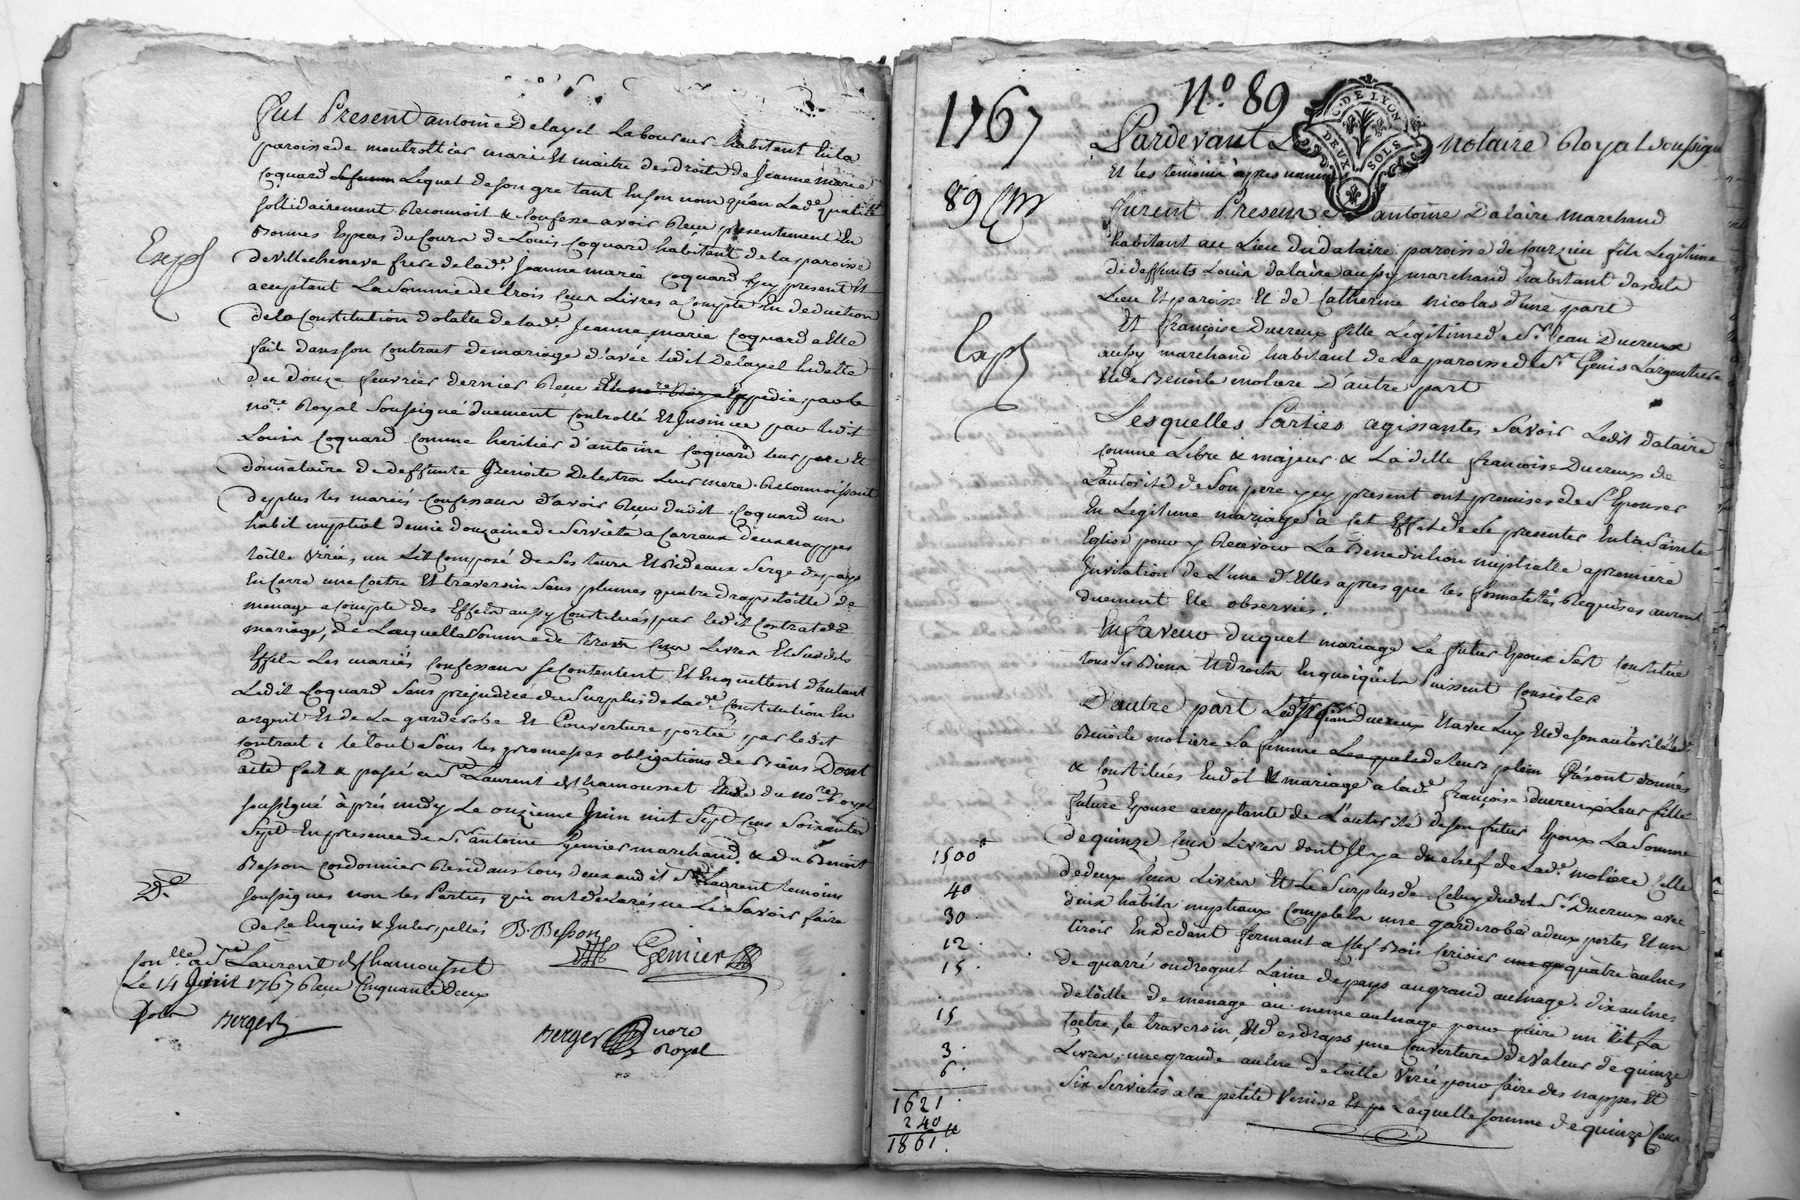 fut Present antoine Delayel Laboureur habitant en la
paroisse de montrottier mari Et maitre des droits de Jeanne marie
Coquard sa femme Lequel de son gre tant En son nom qu'en Lade qualité
sollidairement Reconnoit & Confesse avoir Reçu presentement En
bonnes Especes du Cours de Louis Coquard habitant de la paroisse
de villecheneve frere de lade Jeanne marie Coquard Icy present Et
acceptant La somme de trois Cens Livres a Compte En deduction
de la Constitution dotalle de lade Jeanne marie Coquard a Elle
faite dans son Contrat de mariage d'avec ledit Delayel En datte
du douze feuvrier dernier Reçu par le
nore Royal Soussigné duement Controllé Et Insinué par ledit
Louis Coquard Comme heritier d'antoine Coquard leur pere Et
donnataire de deffunte Benoite Delestra Leur mere. Reconnoissant
de plus les mariés Confessans d'avoir Reçu dudit Coquard un
habit nuptial demie douzaine de Serviete a Carraux deux nappes
toille Virée, un Lit Composé de Ses tours Et Rideaux Serge du pays
En Carré une Coetre Et traversin Sans plumes quatre draps toille de
menage a Compte des Effets aussy Constitués par ledit Contrat de
mariage, de Laquelle Somme de trois Cens Livres Et Susdits
Effets Les mariés Confessans Se Contentent Et En quittent d'autant
Ledit Coquard Sans prejudice du Surplus de Lade Constitution En
argent Et de La garderobe Et Couverture portée par ledit
Contrat ; le tout Sous les promesses obligations de Biens Dont
acte fait & passé a St Laurent de Chamousset Etude du nore Royal
soussigné après midy Le onzieme Juin mil Sept Cens Soixante
Sept En presence de Sr antoine Gemier marchand & de Benoit
Besson Cordonnier Residans tous deux aud it St Laurent temoins
soussignes non les Parties qui ont déclarés ne Le Savoir faire
de Ce Enquis & Interpellés B. Besson
Gemier
Conlle a St Laurent de Chamousset
Le 14 Juin 1767 Reçu Cinquante deux
sols Berger
Berger nore
Royal
Exp
1767
No. 89
G. DE LYON
DEUX SOLS
Pardevant Le Notaire Royal soussigné
Et les temoins apres nommés
89 Cm
furent Presens antoine Dalaire marchand
habitant au Lieu du dalaire paroisse de Courzieu fils Legitime
de deffunts Louis dalaire aussy marchand habitant desdits
Lieu Et paroisse Et de Catherine nicolas d'une part
Et françoise Ducreux fille Legitime de Sr Jean Ducreux
aussy marchand habitant de La paroisse de St Genis L'argentiere
Et de Benoite moliere D'autre part
Exp
Lesquelles Parties agissantes Savoir Ledit dalaire
Comme Libre & majeur & La dite françoise Ducreux de
L'autorité de Son pere Icy present ont promises de S'Epouser
En Legitime mariage à Cet Effet de se presenter En la Sainte
Eglise pour y Recevoir La Benediction nuptialle a premiere
Invitation de L'une d'Elles apres que les formalités Requises auront
duement Eté observées.
En faveur duquel mariage Le futur Epoux S'est Constitué
tous Ses Biens Et droits En quoiqu'ils Puissent Consister
D'autre part Ledit Sr Jean Ducreux Et avec Luy Et de son autorité
Benoite moliere Sa femme Lesquels de leurs plein Gré sont donnés
& Constitués En dot Et mariage a lade françoise Ducreux Leur fille
future Epouse acceptante de L'autorité de son futur Epoux La Somme
de quinze Cens Livres dont Il y a du chef de Lade moliere Celle
de deux Cens Livres Et Le Surplus de Celuy dudit Sr Ducreux avec
deux habits nuptiaux Complets une garderobe a deux portes Et un
tiroir En dedant fermant a Clef Bois Cerisier quatre aulnes
de quarré ou droguet Laine de pays au grand aulnage. dix aulnes
de toille de menage au meme aulnage pour faire un Lit, La
Coetre, le traversin, Et des draps, une Couverture de Valeur de quinze
Livres, une grande aulne de toille Virée pour faire des nappes Et
Six Servietes a la petite Venise Et Laquelle Somme de quinze Cens
1500
40
30
12
15
15
3
6
1621
240
1861